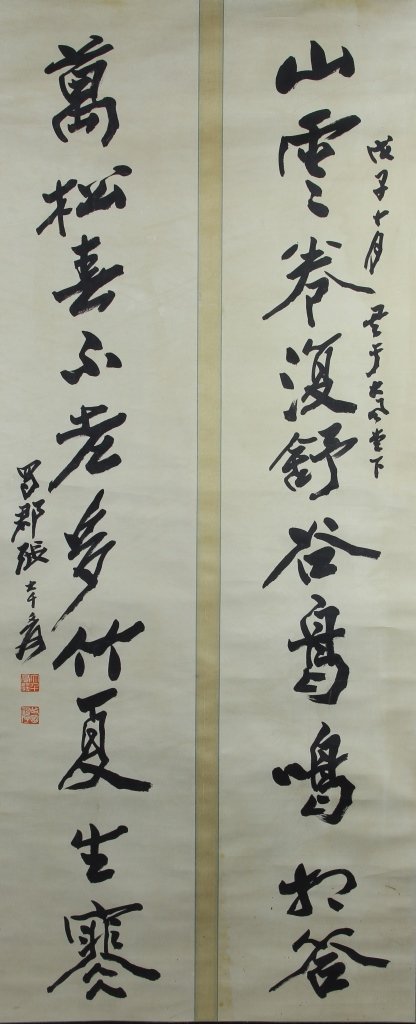 戊子十月 書于大風堂下
山雲卷復舒谷鳥鳴相答
萬松春不老多竹夏生寒
蜀郡張大千爰